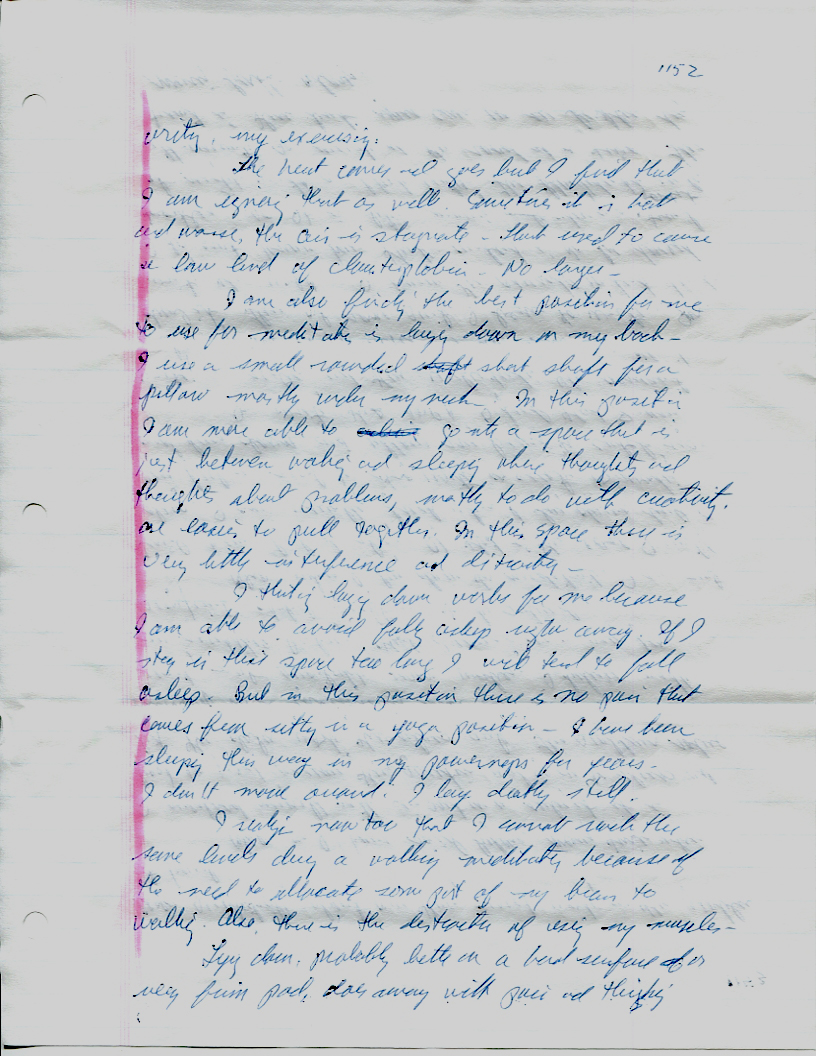 1152
writing, my exercising.
The heat comes and goes but I find that
I am ignoring that as well. Sometimes it is hot
and worse, the air is stagnate - that used to cause
a low kind of claustrophobia - No longer -
I am also finding the best position for me
to use for meditating is laying down on my back -
I use a small rounded short shaft for a
pillow mostly under my neck. In this position
I am more able to go into a space that is
just between waking and sleeping where thoughts and
thoughts about problems, mostly to do with creativity,
are easier to pull together. In this space there is
very little interference and distraction -
I think laying down works for me because
I am able to avoid falling asleep right away. If I
stay in this space too long I will tend to fall
asleep. But in this position there is no pain that
comes from sitting in a yoga position - I have been
sleeping this way in my powernaps for years.
I don't move around. I lay deathly still.
I realize now too that I cannot reach the
same levels during a walking meditation because of
the need to allocate some part of my brain to
walking. Also, there is the distraction of using my muscles -
Laying down, probably better on a hard surface or
very firm pad, does away with pain and thinking